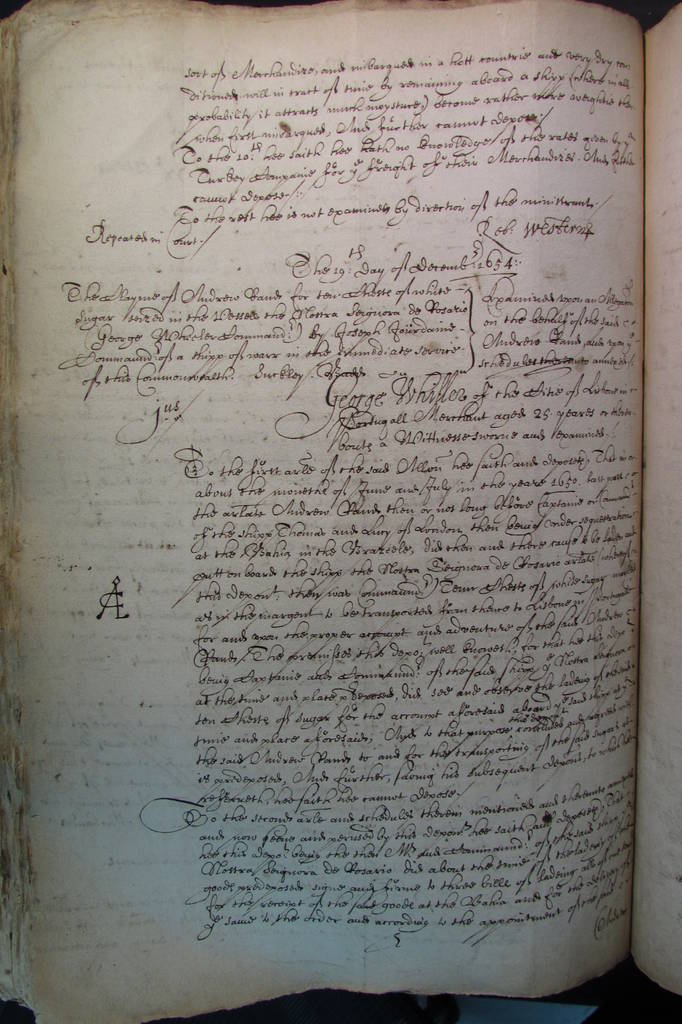 sort of Merchandize, and imbarqued in a hott countrie and very dry con
ditioned will in tract of time by remaining aboard a shipp (where in all
probability it attracts much moysture,) become rather more weightie then
when first imbarqued, And further cannot depose./
To the 10:th hee saith hee hath no knowledge of the rates given by ye
Turkey Companie for ye freight of their Merchandizes. And
cannot depose:
To the rest hee is not examined by direction of the ministrant.
Repeated in Court./
Rob: Western
The 19th Day of Decembr. 1654:
The Clayme of Andrew Rand for ten Chests of white
sugar seized in the Vessell the Nostra Seignora de Rosario
George Wheeler Commandr.) by Joseph Jourdaine
Commaund of a shipp of warr in the immediate service
of this Commonwealth. Suckley.
Examined upon an Allegaon
on the behalf of the said
Andrew Rand, and upon ye
schedules thereunto annexed.
George Whiller of the Citie of Lisbone in
Portugall Merchant aged 25 yeares or there
bouts a Wittnesse sworne and examined.
jus
To the first arle of the said Allon hee saith and deposeth, That in or
about the moneths of June and July in the yeare 1650. last past
the arlate Andrew Rand then or not long before Captaine or Commandr
of the shipp Thomas and Lucy of London then being under sequestration
at the Bahia in the Brazeele, did then and there cause to be laden and
putt on board the shipp the Nostra Seignora de Rosario arlate (whereof
this depont. then was Commaundr) Tenn Chests of white sugar marked
as in the margent to be transported from thence to Lisbone in Portugall
for and upon the proper accompt and adventure of the said Andrew
Rand, The premisses this depot well knoweth, for that hee this depot
being Captaine and Commaundr. of the said shipp ye Nostra
at the time and place predeposed, did see and observe the lading of the said
ten Chests of sugar for the accompt aforesaid aboard ye said shipp at ye
time and place aforesaid, And to that purpose this deponent contracted and agreed with
the said Andrew Rand to and for the transporting of the said sugars as
is predeposed, And further, saving his subsequent deposn, to which hee
referreth, hee saith hee cannot depose.
A
To the second arle and schedules therein mentioned and thereunto annexed
and now seene and perused by this depont. hee saith and deposeth, That
hee this depot. being the then Mr and Commaundr. of the said shipp
Nostra Seignora de Rosario did about the time of the lading of the
goods predeposed signe and firme to three bills of lading all of
for the receipt of the said goods at the Bahia and for the delivery of
ye same to the order and according to the appointment of the said
(Andrew